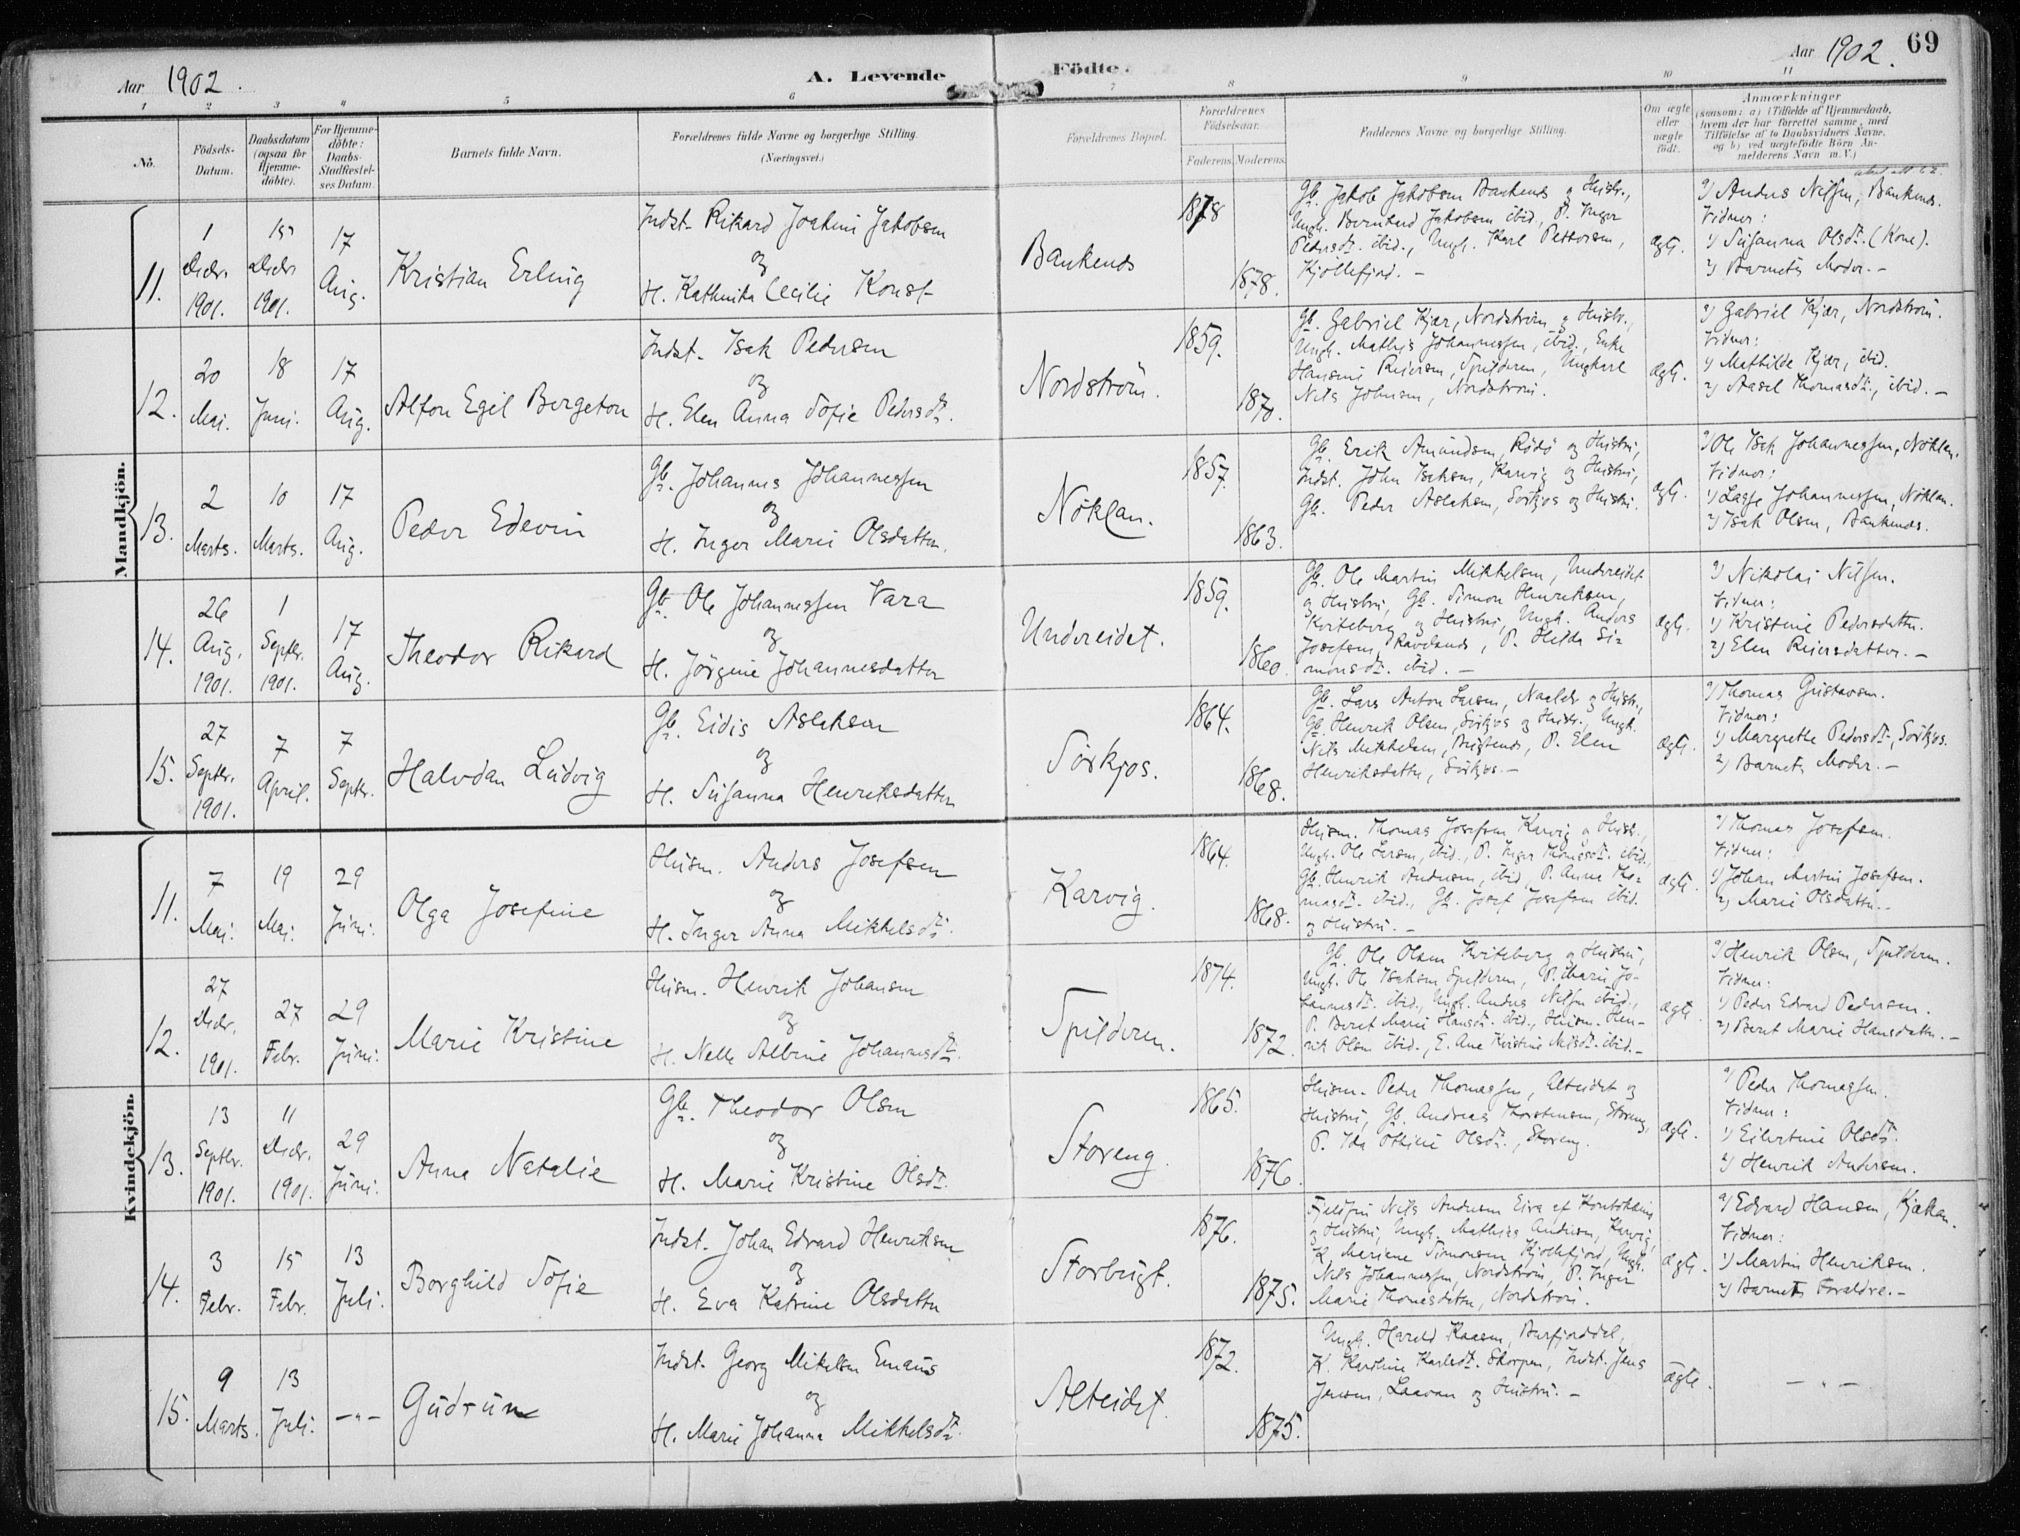 Aar 1902.
A. Levende Födte.
Aar 1902. 69
1 2 3 4 5 6 7 8 9 10 11
No.
Födsels-Datum.
Daabsdatum (ogsaa for Hjemmedöbte).
For Hjemmedöbte: Daabs-Stadfæstelses Datum.
Barnets fulde Navn.
Forældrenes fulde Navne og borgerlige Stilling. (Næringsvei.)
Forældrenes Bopæl.
Forældrenes Födselsaar.
Faderens. Moderens.
Faddernes Navne og borgerlige Stilling.
Om ægte eller uægte födt.
Anmærkninger
(saasom: a) i Tilfælde af Hjemmedaab,
hvem der har forrettet samme, med
Tilföielse af to Daabsvidners Navne,
og b) ved uægtefödte Börn An-
melderens Navn m. V.)
Mandkjön.
11.
1 Decbr. 1901.
15 Decbr. 1901.
17 Aug.
Kristian Erling
Indst. Rikard Joakim Jakobsen
og
H. Kathinka Cecilie Konst
Bankenes
1878
1878.
Gb. Jakob Jakobsen Bankenes og Hustr.,
Ungk. Bernhard Jakobsen ibid., P. Inger
Pedersdt. ibid., Ungk. Karl Pettersen,
Kjöllefjord. -
ægte.
a) Anders Nilsen, Bankenes.
Vidner:
1) Susanna Olsdt. (Kone).
2) Barnets Moder. -
12.
20 Mai.
18 Juni.
17 Aug.
Alfon Egil Bergeton
Indst. Isak Pedersen
og
H. Elen Anna Sofie Pedersdt.
Nordström.
1859.
1870.
Gb. Gabriel Kjær, Nordström og Hustr.,
Ungk. Mathis Johannessen, ibid., Enke
Hansine Reiersen, Spilderen, Ungkarl
Nils Johnsen, Nordström.
ægte.
a) Gabriel Kjær, Nordström.
Vidner:
1) Mathilde Kjær, ibid.
2) Aasel Thomasdt., ibid. -
13.
2 Marts.
10 Marts.
17 Aug.
Peder Edevin
Gb. Johannes Johannessen
og
H. Inger Marie Olsdatter.
Nöklan.
1857.
1863.
Gb. Erik Amundsen, Rödö og Hustru,
Indst. John Isaksen, Karvig og Hustru,
Gb. Peder Aslaksen, Sörkjos og Hustru.
ægte.
a) Ole Isak Johannessen, Nöklan.
Vidner:
1) Lasse Johannessen, Nöklan.
2) Isak Olsen, Bankenes.
14.
26 Aug. 1901.
1 Septbr. 1901.
17 Aug.
Theodor Rikard
Gb. Ole Johannessen Vara
og
H. Jörgine Johannesdatter
Undereidet.
1859.
1860.
Gb. Ole Martin Mikkelsen, Undereidet
og Hustru, Gb. Simon Henriksen,
Kviteberg og Hustru, Ungk. Anders
Josefsen, P. Hilda Si-
monsdt. ibid. -
ægte.
a) Nikolai Nilsen.
Vidner:
1) Kristine Pedersdatter.
2) Elen Reiersdatter. -
15.
27 Septbr. 1901.
7 April.
7 Septbr.
Halvdan Ludvig
Gb. Eidis Aslaksen
og
H. Susanna Henriksdatter
Sörkjos.
1864.
1868.
Gb. Lars Anton Larsen, og Hustr.,
Gb. Henrik Olsen, Sörkjos og Hustr., Ungk.
Nils Mikkelsen, P. Elen
Henriksdatter, Sörkjos. -
ægte.
a) Thomas Gustavsen.
Vidner:
1) Margrethe Pedersdt., Sörkjos.
2) Barnets Moder. -
Kvindekjön.
11.
7 Mai.
19 Mai.
29 Juni.
Olga Josefine
Husm. Anders Josefsen
og
H. Inger Anna Mikkelsdt.
Karvig.
1864.
1868.
Husm. Thomas Josefsen Karvig og Hustr.,
Ungk. Ole Larsen, ibid., P. Inger Thomasdt. ibid.,
Gb. Henrik Andersen, ibid., P. Anna Tho-
masdt. ibid., Gb. Josef Josefsen ibid.
og Hustru. -
ægte.
a) Thomas Josefsen.
Vidner:
1) Johan Martin Josefsen.
2) Marie Olsdatter. -
12.
27 Decbr. 1901.
27 Febr.
29 Juni.
Marie Kristine
Husm. Henrik Johansen
og
H. Nelle Albine Johannesdt.
Spilderen.
1874.
1872.
Gb. Ole Olsen Kviteberg og Hustru,
Ungk. Ole Isaksen Spilderen, P. Marie Jo-
hannesdt. ibid., Ungk. Anders Nilsen ibid.,
P. Beret Marie Hansdt. ibid., Husm. Hen-
rik Olsen ibid., E. Ane Kristine Nilsdt. ibid. -
ægte.
a) Henrik Olsen, Spilderen.
Vidner:
1) Peder Edvard Pedersen.
2) Beret Marie Hansdatter. -
13.
13 Septbr. 1901.
11 Decbr. 1901.
29 Juni.
Anna Natalie
Gb. Theodor Olsen
og
H. Marie Kristine Olsdt.
Storeng.
1865.
1876.
Husm. Peder Thomassen, Alteidet og
Hustru, Gb. Andreas Thorstensen, Storeng,
P. Ida Othine Olsdt., Storeng.
ægte.
a) Peder Thomassen.
Vidner:
1) Eilertine Olsdt.
2) Henrik Andersen.
14.
3 Febr.
15 Febr.
13 Juli.
Borghild Sofie
Indst. Johan Edvard Henriksen
og
H. Eva Katrine Olsdatter
Storbugt.
1876.
1875.
Fjeldfin Nils Andersen Eira af Koutokeino
og Hustru, Ungk. Mathias Andersen, Karvig,
K. Mariene Simonsen, Kjöllefjord, Ungk.
Nils Johannessen, Nordström, P. Inger
Marie Thomasdatter, Nordström.
ægte.
a) Edvard Hansen, Kjækan.
Vidner:
1) Martin Henriksen.
2) Barnets Forældre. -
15.
9 Marts.
13 Juli.
-„-
Gudrun
Indst. Georg Mikelsen Emaus
og
H. Marie Johanna Mikkelsdt.
Alteidet.
1872.
1875.
Ungk. Harald Kaasen, Burfjorddal,
K. Karoline Karlsdt. Skorpen, Indst. Jens
Jensen, Laavan og Hustru. -
ægte.
- „ -